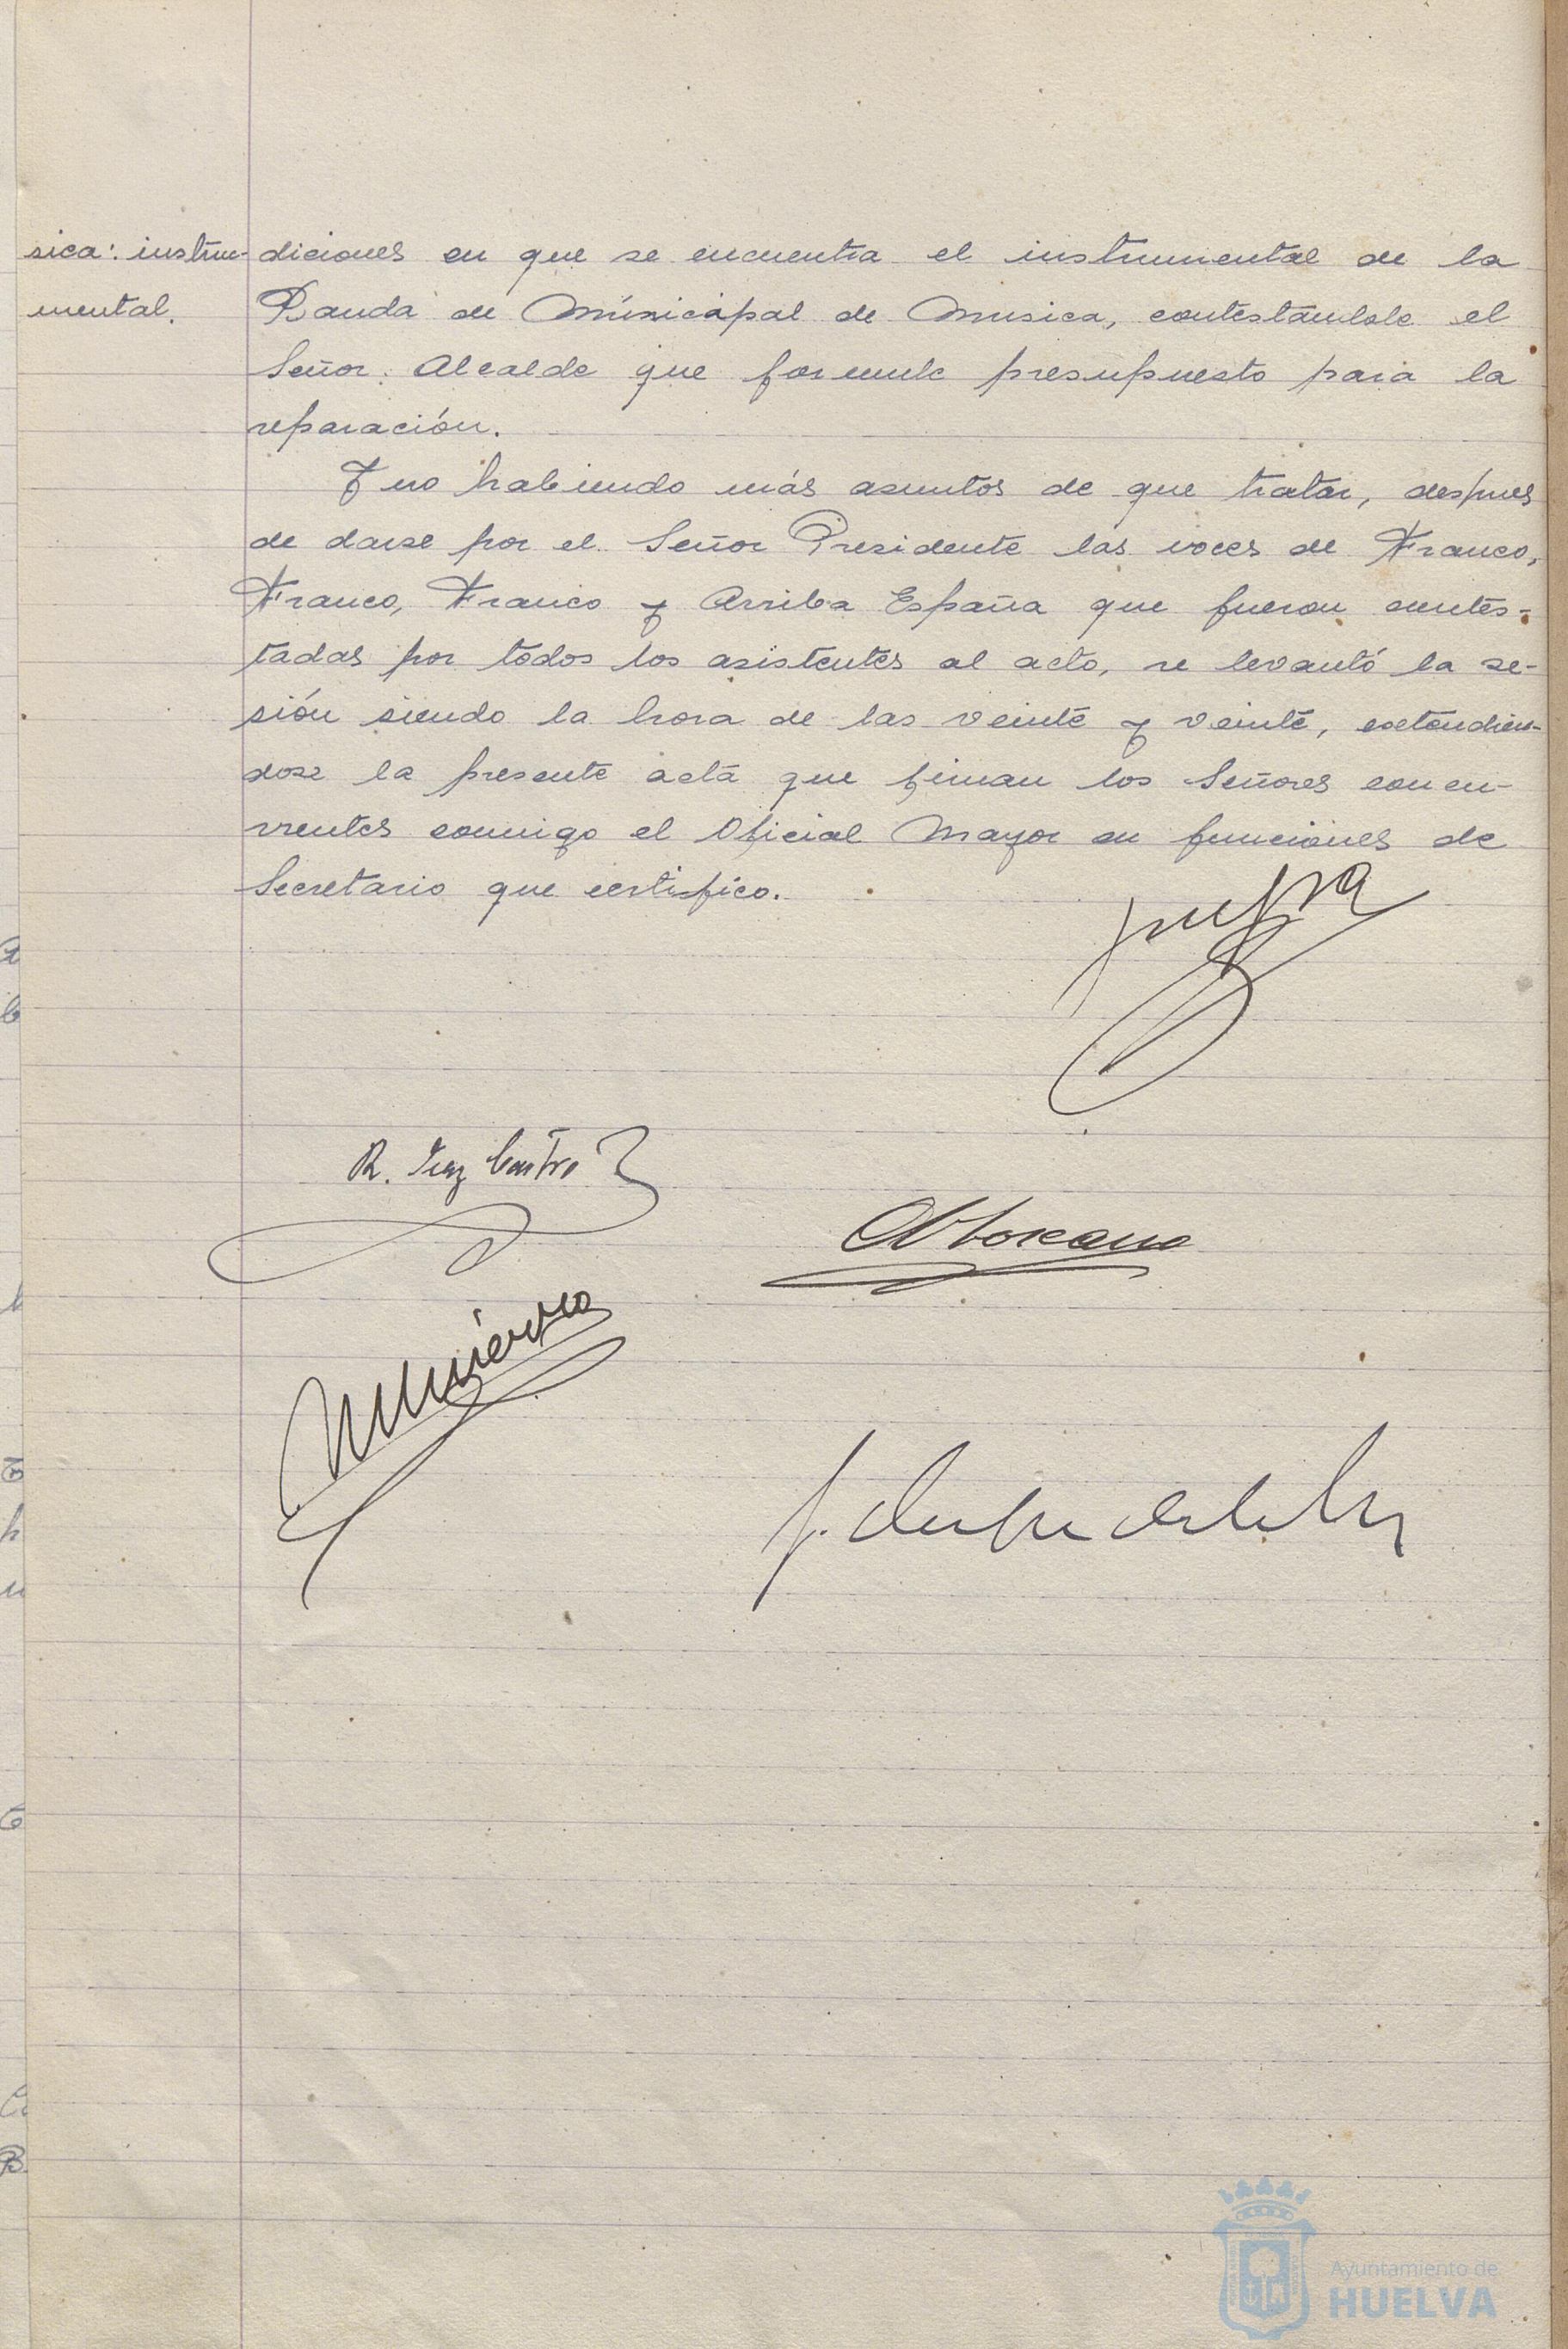 sica: instru-
mental.
diciones en que se encuentra el instrumental de la
Banda de Múnicipal de Musica, contestándole el
Señor Alcalde que formule presupuesto para la
reparación.
Y no habiendo más asuntos de que tratar, despues
de darse por el Señor Presidente las voces de Franco,
Franco, Franco y Arriba España que fueron contes-
tadas por todos los asistentes al acto, se levantó la se-
sión siendo la hora de las veinte y veinte, extendien-
dose la presente acta que firman los Señores concu-
rrentes conmigo el Oficial Mayor en funciones de
Secretario que certifico.
R. Diaz Castro
Toscano
Ayuntamiento de
HUELVA